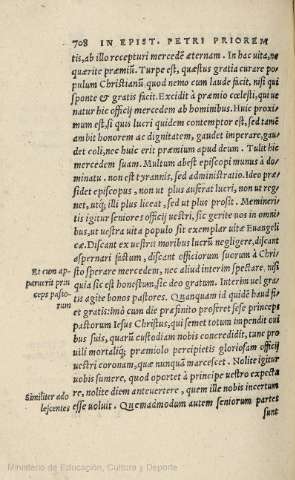 708 IN EPIST. PETRI PRIOREM
tis, ab illo recepturi mercedē æternam. In hac uita, ne
quærite præmiū. Turpe est, quæstus gratia curare po-
pulum Christianū, quod nemo cum laude facit, nisi qui
sponte & gratis facit. Excidit à præmio cœlesti, qui ue
natur hic officij mercedem ab hominibus. Huic proxi
mum est, si quis lucri quidem contemptor est, sed tamē
ambit honorem ac dignitatem, gaudet imperare, gau-
det coli, nec huic erit præmium apud deum. Tulit hic
mercedem suam. Multum abest episcopi munus à do-
minatu. non est tyrannis, sed administratio. Ideo præ-
sidet episcopus, non ut plus auferat lucri, non ut regnet,
net, utq́; illi plus liceat, sed ut plus prosit. Memineri-
tis igitur seniores officij uestri, sic gerite uos in omni-
bus, ut uestra uita populo sit exemplar uitæ Euangeli
cæ. Discant ex uestris moribus lucrū negligere, discant
aspernari fastum, discant officiorum suorum à Chri-
Et cum ap- sto sperare mercedem, nec aliud interim spectare, nisi
paruerit prin quia sic est honestum, sic deo gratum. Interim uel gra
ceps pasto- tis agite bonos pastores. Quanquam id quidē haud fi-
rum et gratis: imò cum die præfinito proferet sese princeps
pastorum Iesus Christus, qui semet totum impendit oui
bus suis, quarū custodiam nobis concredidit, tunc pro
uili mortaliq́; præmiolo percipietis gloriosam officij
uestri coronam, quæ nunquā marcescet. Nolite igitur
uobis sumere, quod oportet à principe uestro expecta
Similiter ado re, nolite diem anteuertere, quem ille nobis incertum
lescentes esse uoluit. Quemadmodum autem seniorum partes
sunt
Ministerio de Educación, Cultura y Deporte